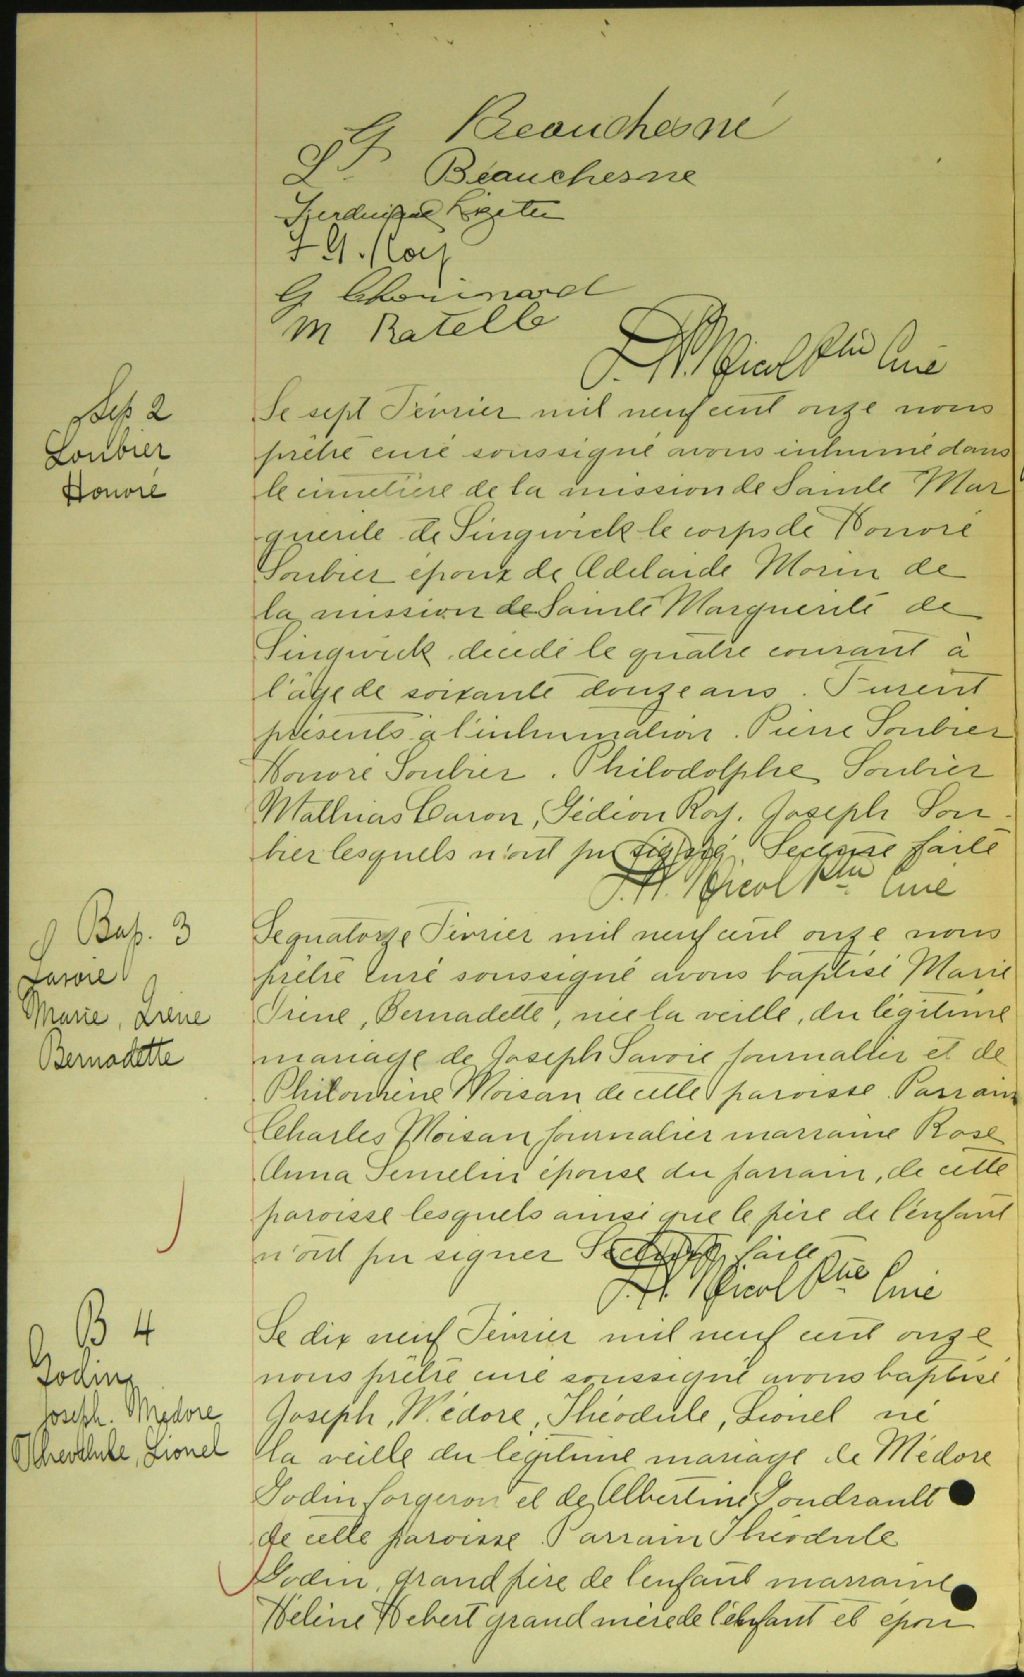 G Beauchesne
L. Beauchesne
F G. Roy
G Chouinard
M Ratelle
J. A. Nicol Ptre Curé
Sep 2
Loubier
Honoré
Le sept Février mil neuf cent onze nous
prêtre curé soussigné avons inhumé dans
le cimetière de la mission de Sainte Mar
guerite de Lingwick le corps de Honoré
Loubier époux de Adelaide Morin de
la mission de Sainte Marguerite de
Lingwick décédé le quatre courant à
l'âge de soixante douze ans. Furent
présents à l'inhumation. Pierre Loubier
Honoré Loubier. Philodolphe Loubier
Mathias Caron, Gédéon Roy. Joseph Lou-
bier lesquels n'ont pu signé Lecture faite
J. A. Nicol Ptre Curé
Bap. 3
Savoie
Marie, Irene
Bernadette
Le quatorze Février mil neuf cent onze nous
prêtre curé soussigné avons baptisé Marie
Irène, Bernadette, née la veille, du légitime
mariage de Joseph Savoie journalier et de
Philomène Moisan de cette paroisse. Parrain
Charles Moisan journalier marraine Rose
Anna Lemelin épouse du parrain, de cette
paroisse lesquels ainsi que le père de l'enfant
n'ont pu signer Lecture faite
J. A. Nicol Ptre Curé
B 4
Godin
Joseph. Médore
Lionel
Le dix neuf Février mil neuf cent onze
nous prêtre curé soussigné avons baptisé
Joseph, Médore, Théodule, Lionel né
la veille du légitime mariage de Médore
Godin forgeron et de Albertine Goudreault
de cette paroisse. Parrain Théodule
Godin, grand père de l'enfant marraine
Hélène Hebert grand mère de l'enfant et épou